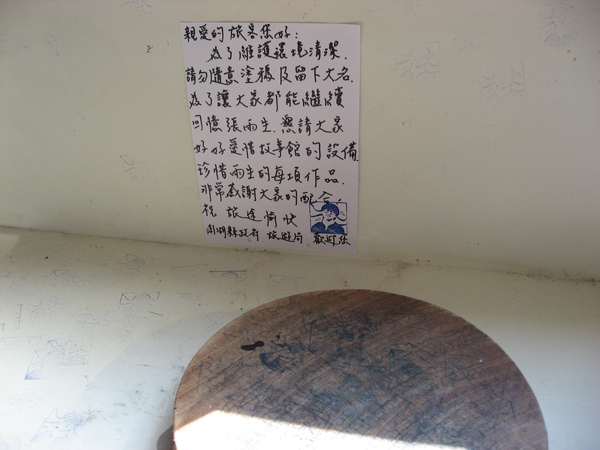 親愛的旅客您好:
為了維護環境清潔.
請勿隨意塗穢及留下大名.
為了讓大家都能繼續
回憶張雨生.懇請大家
好好愛惜故事館的設備
珍惜雨生的每項作品.
非常感謝大家的配合.
祝旅途愉快
澎湖縣政府 旅遊局 歡迎您